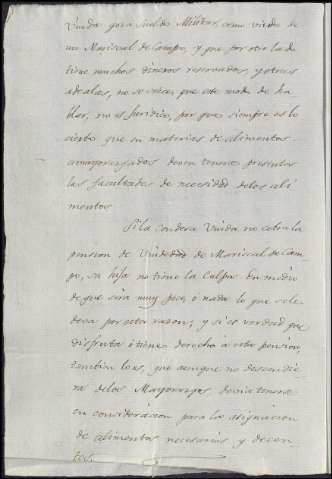 Viuda goza sueldo Militar, como viuda de
un Mariscal de Campo, y que por otro lado
tiene muchos dineros reservados, y otras
adealas, no se vé, que este modo de ha
blar, no es Juridico, por que siempre es lo
cierto que en materias de alimentos
amayorazgados deven tenerse presentes
las facultades de necesidad delos ali
mentos
Si la Condesa Viuda no cobra la
pension de Viudedad de Mariscal de Cam
po, su hijo no tiene la Culpa. En medio
de que sera muy poco, ó nada lo que se le
deva por esta razon; y si es verdad que
disfruta ó tiene derecho á esta pension,
tambien lo es, que aunque no descendie
ra delos Mayorazgos, devia tenerse
en consideracion para la asignacion
de alimentos necesarios, y decen
tes.